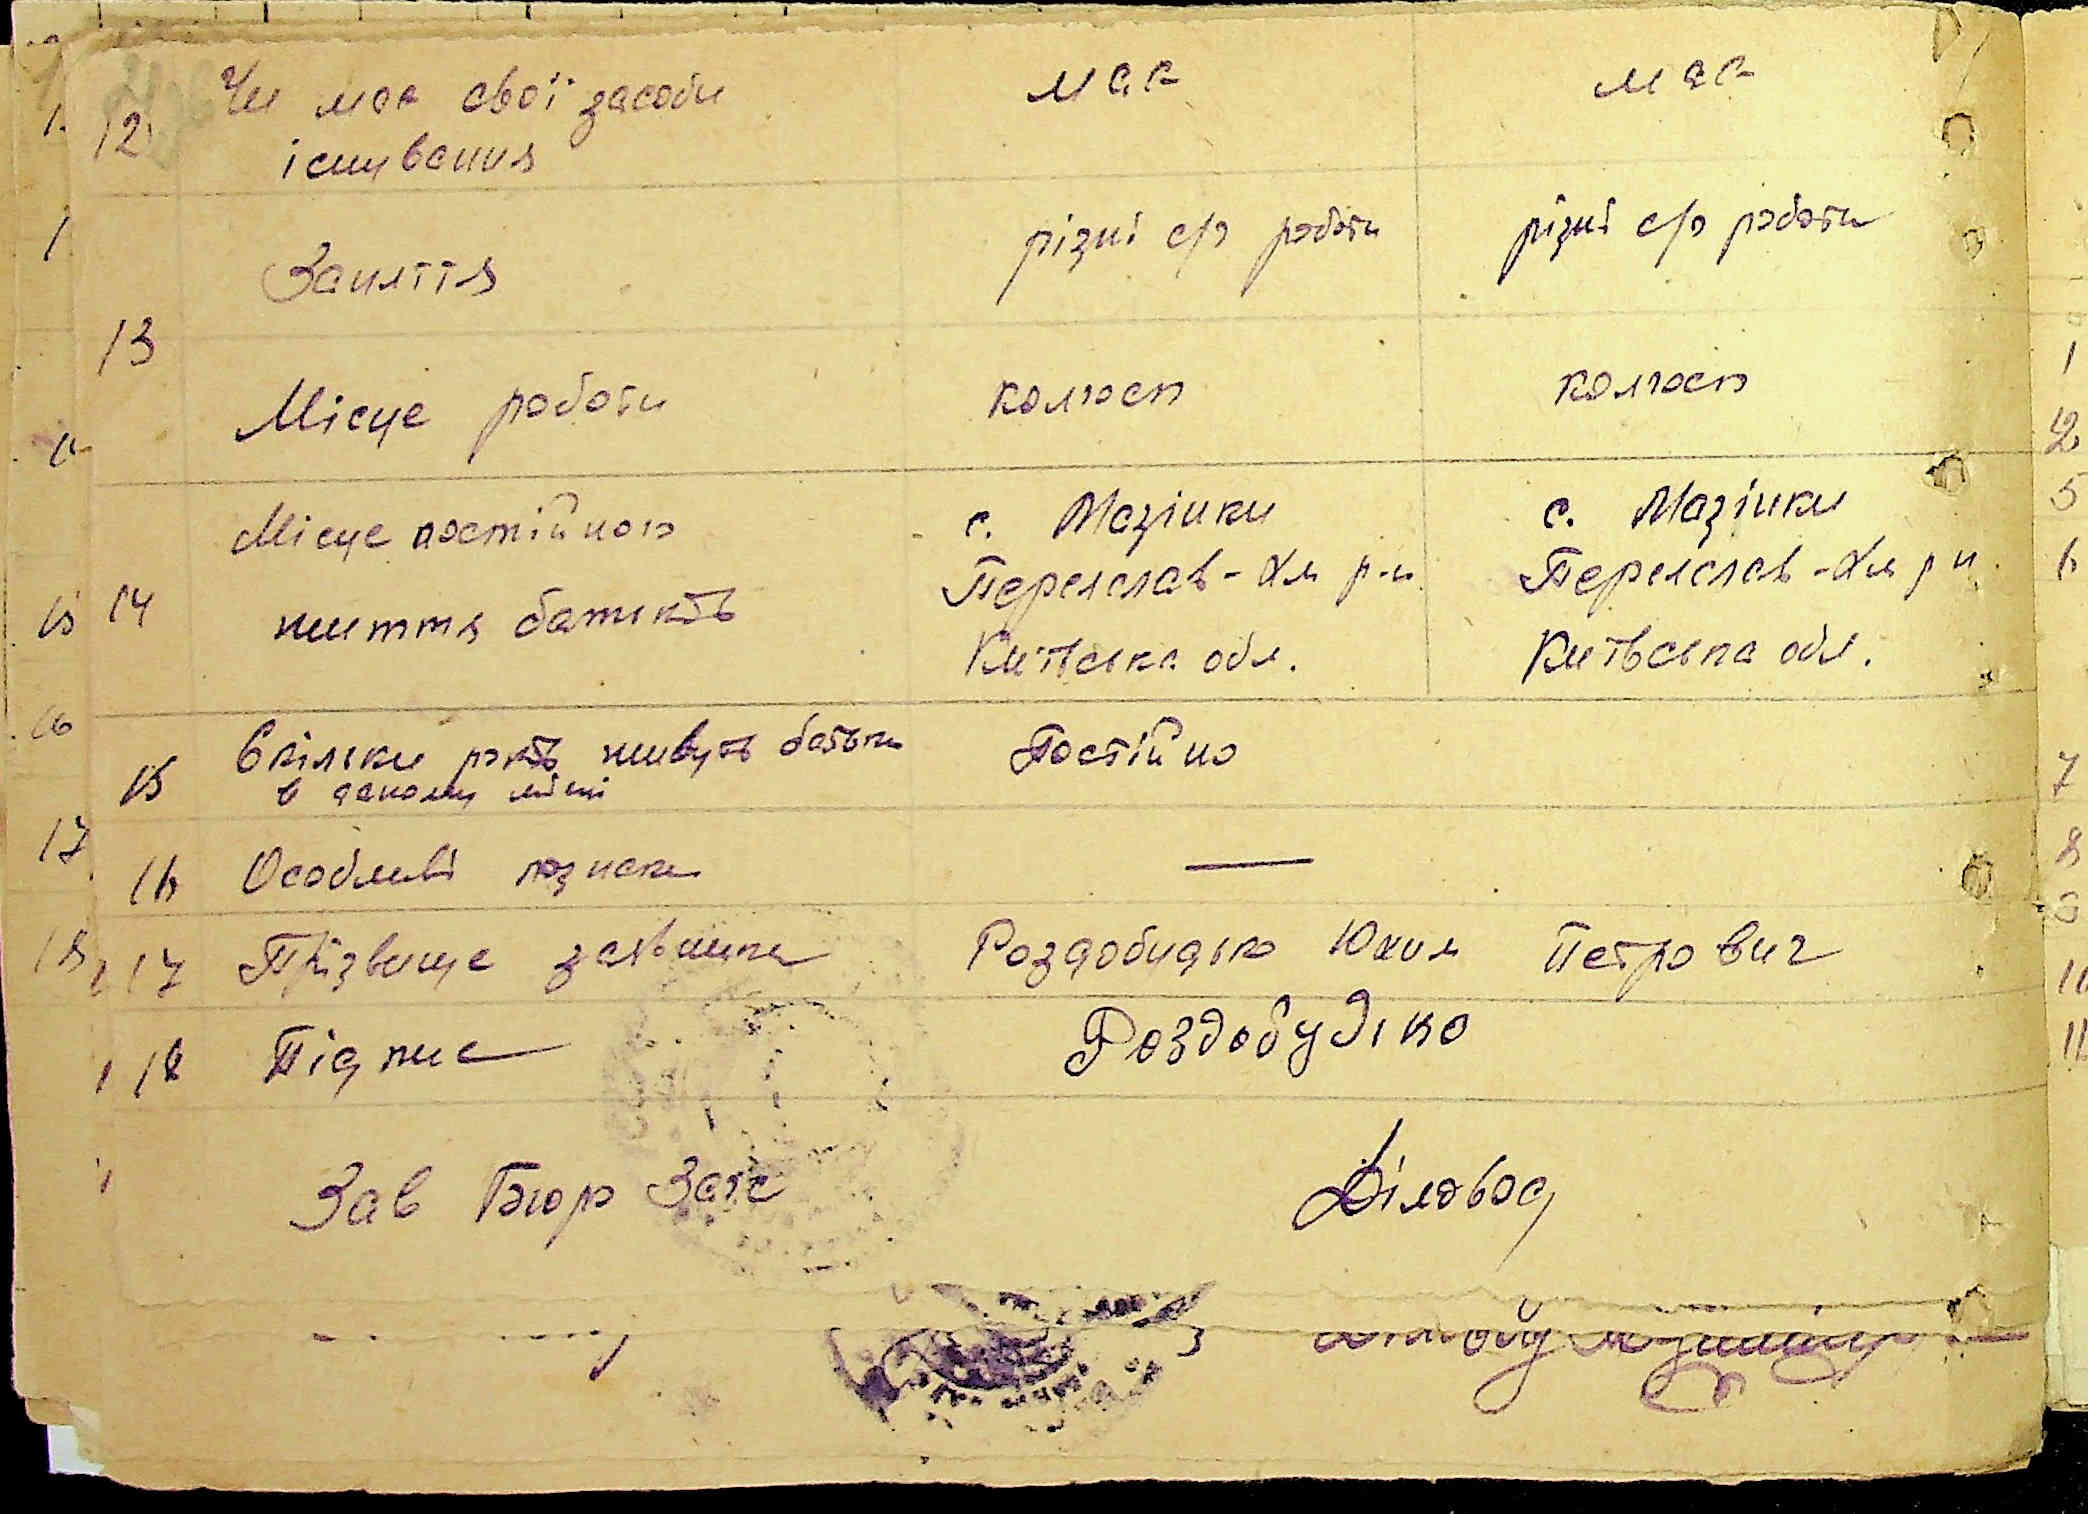 12 Чи має свої засоби має має
існування
Заняття різні с/г роботи різні с/г роботи
13
Місце роботи колгосп колгосп
Місце постійного с. Мазінки с. Мазінки
14 життя батьків Переяслав-Хм р-н Переяслав-Хм р н
Київська обл. Київська обл.
15 Скільки років живуть батьки Постійно
в даному місці
16 Особливі познаки —
17 Прізвище заявника Роздобудько Юхим Петрович
18 Підпис Роздобудько
Зав Бюро Загс Діловод